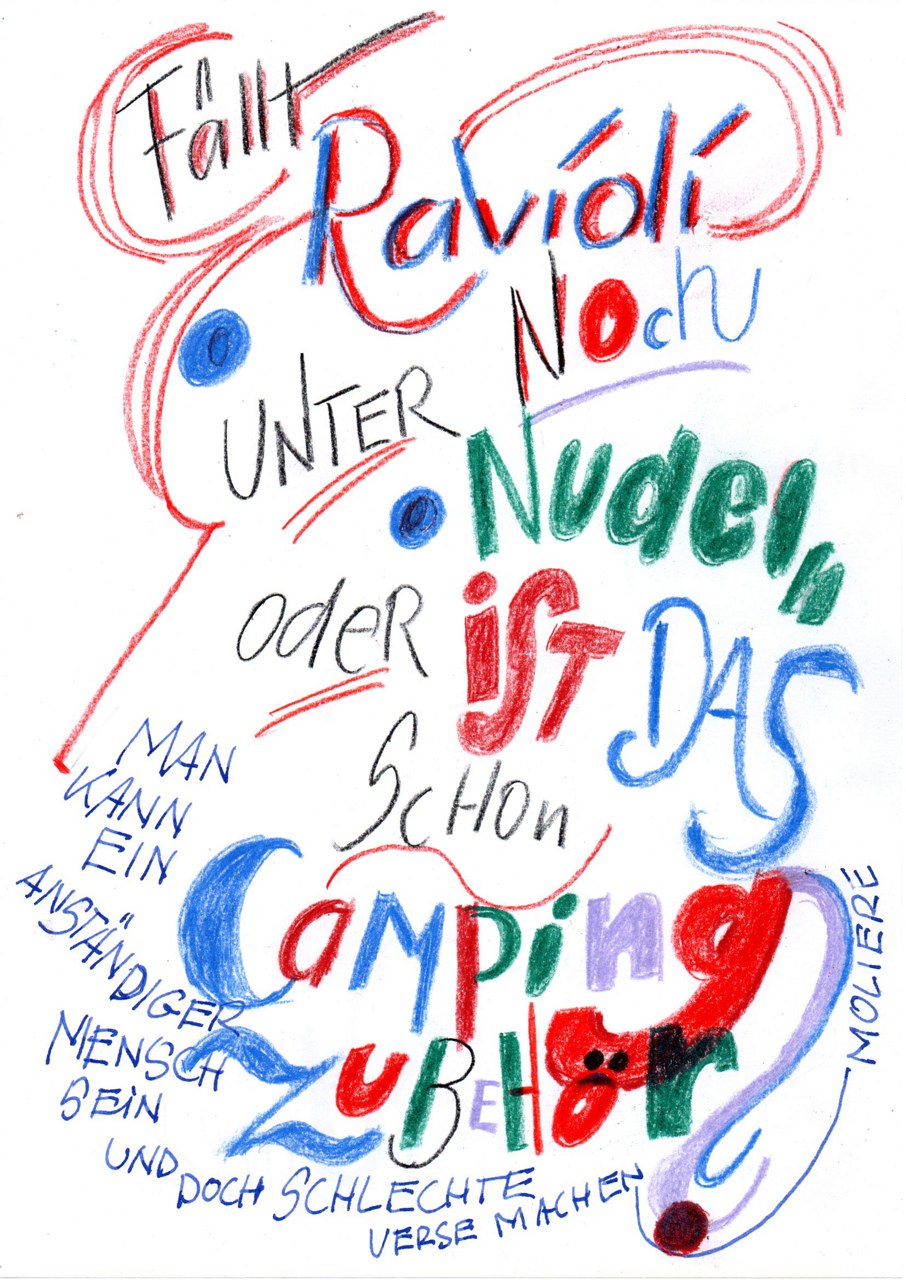 Fällt
Ravioli
Noch
UNTER
Nudeln
oder iST DAS
SCHON
Camping
ZUBEHÖR
?
MAN
KANN
EIN
ANSTÄNDIGER
MENSCH
SEIN
UND
DOCH SCHLECHTE
VERSE MACHEN
MOLIERÉ